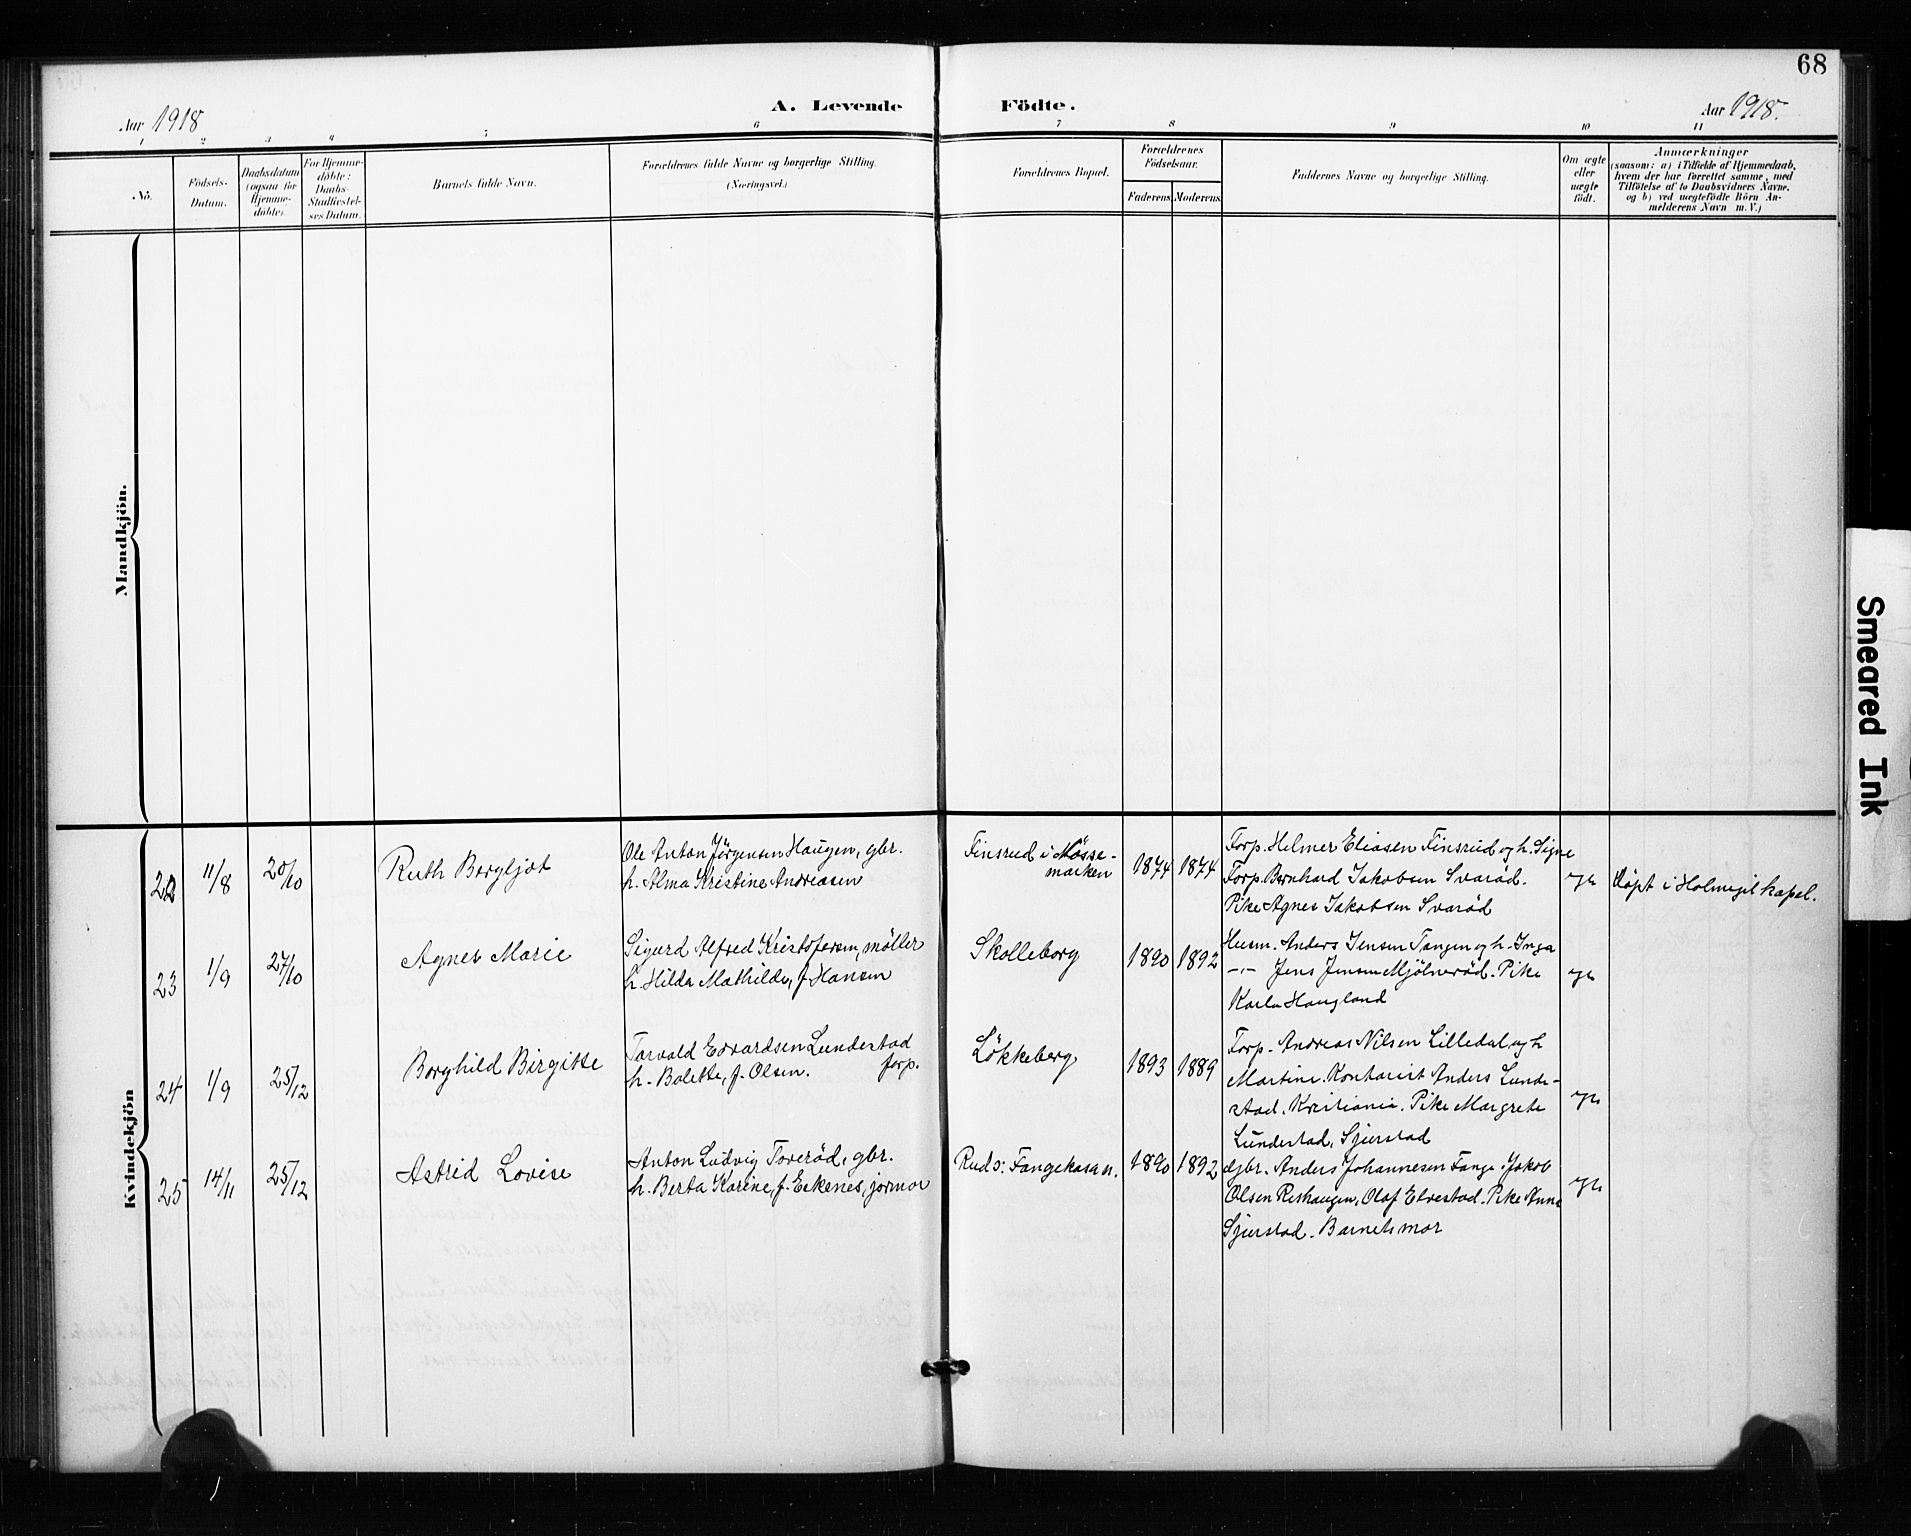 68
A. Levende Födte.
Aar 1918
Aar 1918.
1 2 3 4 5 6 7 8 9 10 11
No.
Födsels-
Datum.
Daabsdatum
(ogsaa for
Hjemme-
döbte).
For Hjemme-
döbte:
Daabs-
Stadfæstel-
ses Datum.
Barnets fulde Navn.
Forældrenes fulde Navne og borgerlige Stilling.
(Næringsvei.)
Forældrenes Bopæl.
Forældrenes
Födselsaar.
Faderens Moderens
Faddernes Navne og borgerlige Stilling.
Om ægte
eller
uægte
födt.
Anmærkninger
(saasom: a) i Tilfælde af Hjemmedaab,
hvem der har forrettet samme, med
Tilföielse af to Daabsvidners Navne,
og b) ved uægtefödte Börn An-
melderens Navn m. V.)
Mandkjön.
Kvindekjön
22 11/8 20/10 Ruth Bergljot
Ole Anton Jörgensen Haugen, gbr.
h. Alma Kristine Andreasen
Finsrud i Mosse-
marken
1874 1874
Forp. Helmer Eliasen Finsrud og h. Signe
Forp. Bernhard Jakobsen Svaröd.
Pike Agnes Jakobsen Svaröd
Döpt i Holmegil kapel.
23 1/9 27/10 Agnes Marie
Sigurd Alfred Kristofersen, møller
h. Hilda Mathilde, f. Hansen
Skolleborg
1890 1892
Husm. Anders Jensen Tangen og h. Inga
-"- Jens Jensen Mjölneröd. Pike
Karla Haugland
24 1/9 25/12 Borghild Birgitte
Torvald Edvardsen Lundestad
forp.
h. Bolette, f. Olsen.
Lökkeberg
1893 1889
Forp. Andreas Nilsen Lilledal og h
Martine. Kontorist Anders Lunde-
stad. Kristiania. Pike Margrete
Lundestad, Sjerstad
25 14/11 25/12 Astrid Lovise
Anton Ludvig Toveröd, gbr.
h. Berta Karine, f. Eekenes, jormor
Ruds: Fangekasan.
1890 1892
Gbr. Anders Johannesen Fange. Jakob
Olsen Reshaugen, Olaf Elvestad. Pike Anna
Sjerstad. Barnets mor
Smeared Ink